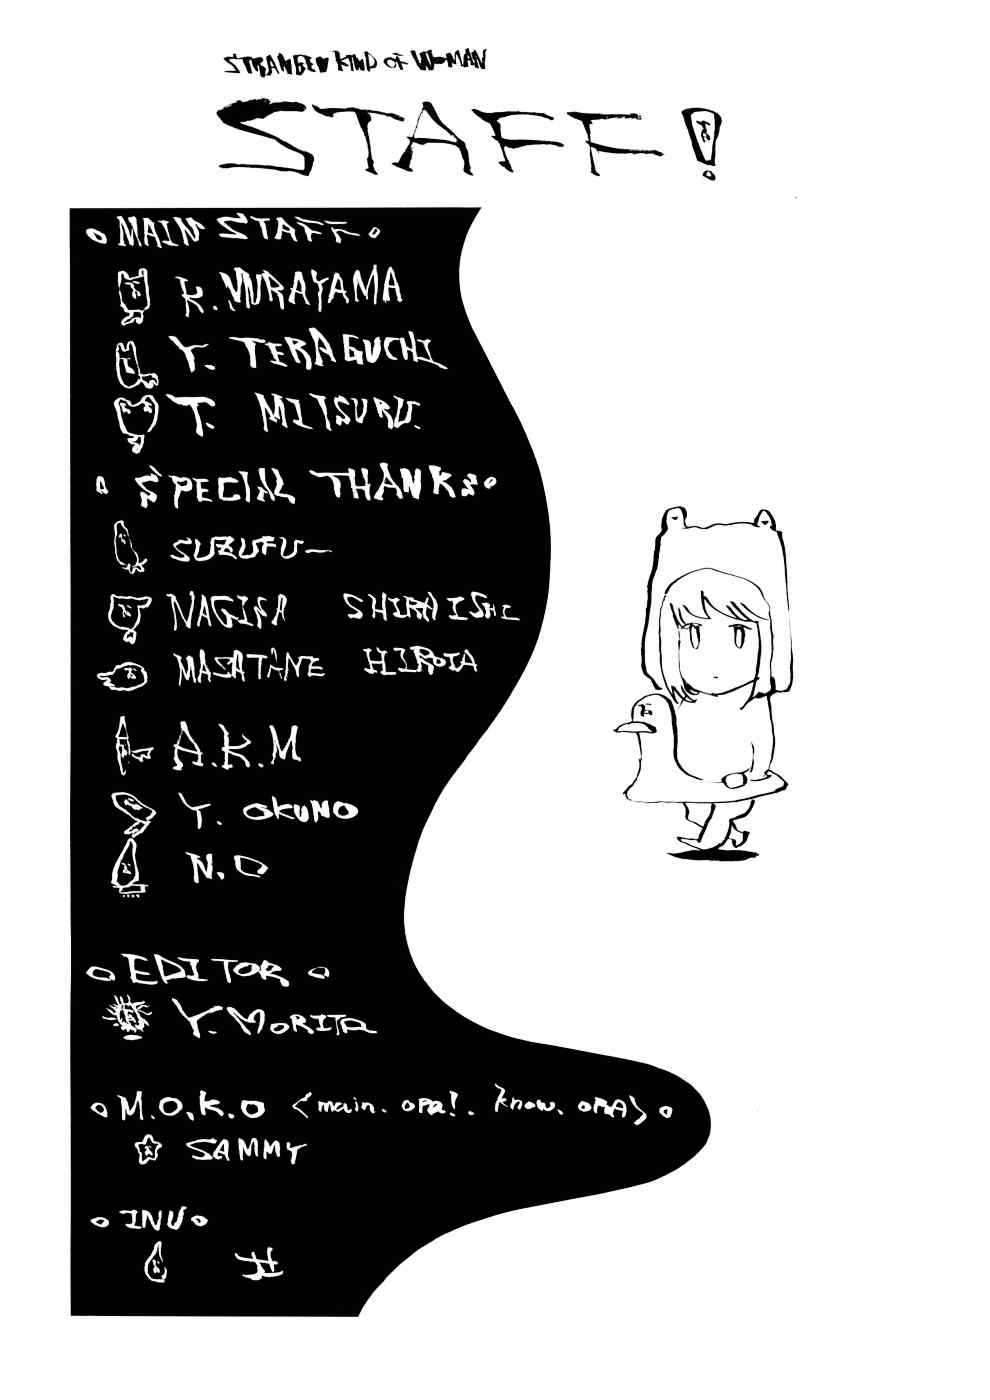 STRANGE KIND OF WOMAN
STAFF!
MAIN STAFF
K. MURAYAMA
Y. TERAGUCHI
T. MITSURU.
SPECIAL THANKS
SUZUFU—
NAGISA SHIRAISHI
MASATANE HIROTA
A.K.M
Y. OKUNO
N.O
EDITOR
Y. MORITA
M.O.K.O <main. OPA!. know. OPA>
SAMMY
INU
井